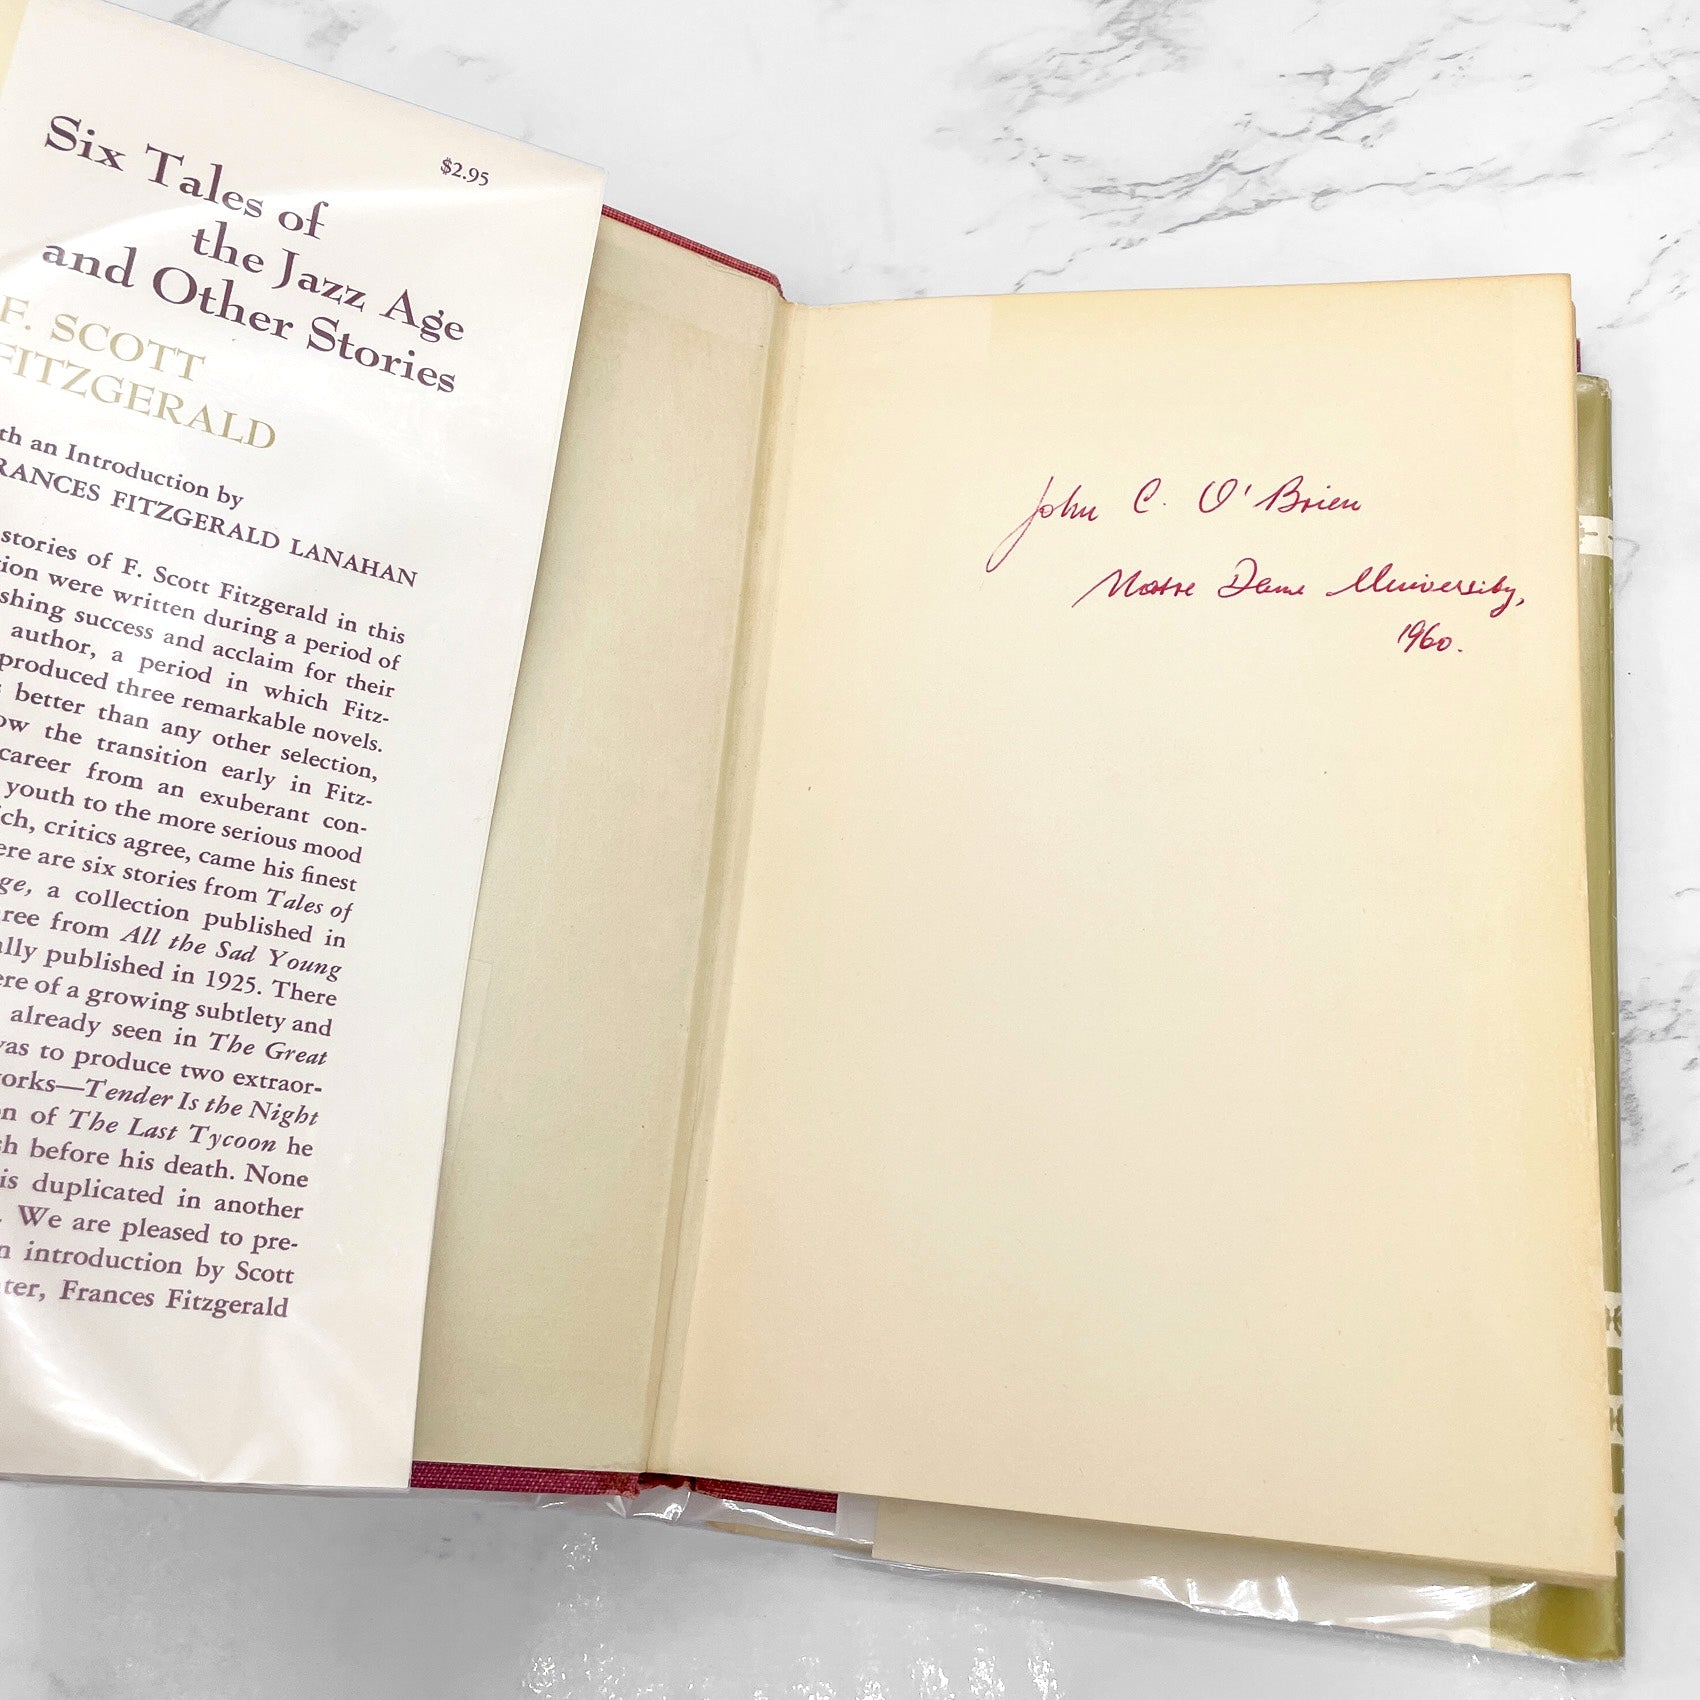 $2.95
Six Tales of
the Jazz Age
and Other Stories
F. SCOTT
FITZGERALD
an Introduction by
FITZGERALD LANAHAN
stories of F. Scott Fitzgerald in this
were written during a period of
success and acclaim for their
author, a period in which Fitz-
produced three remarkable novels.
better than any other selection,
the transition early in Fitz-
career from an exuberant con-
youth to the more serious mood
critics agree, came his finest
are six stories from Tales of
a collection published in
from All the Sad Young
published in 1925. There
of a growing subtlety and
already seen in The Great
to produce two extraor-
—Tender Is the Night
of The Last Tycoon he
before his death. None
is duplicated in another
We are pleased to pre-
introduction by Scott
Frances Fitzgerald
John C. O'Brien
Notre Dame University,
1960.